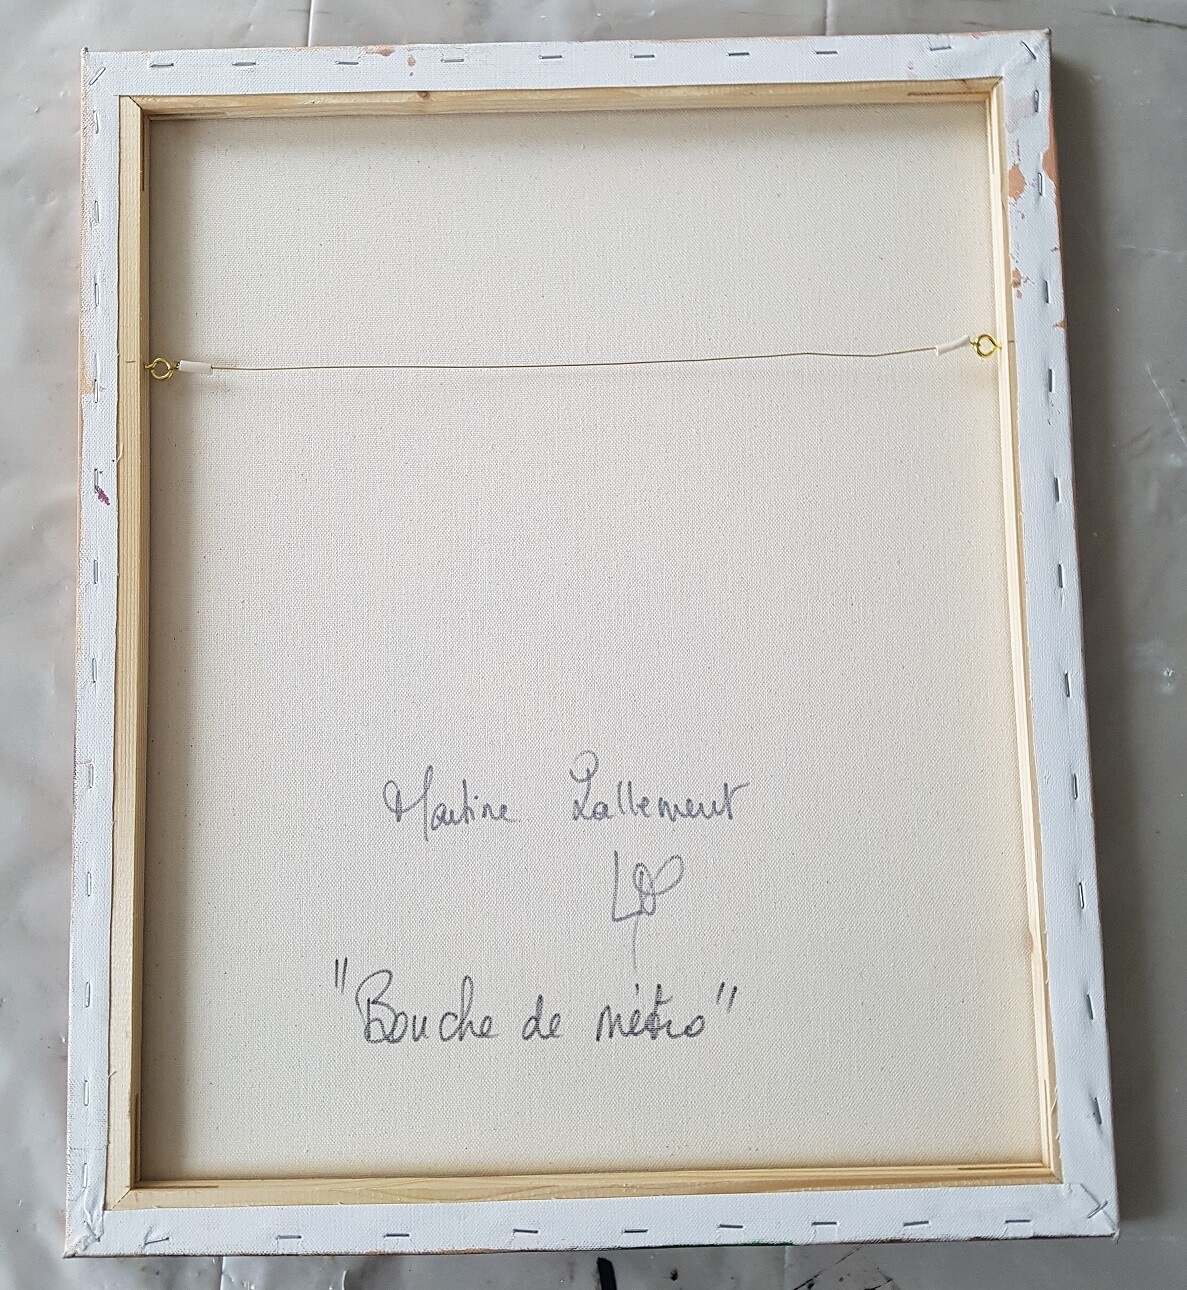 Martine Lallement
"Bouche de métro"